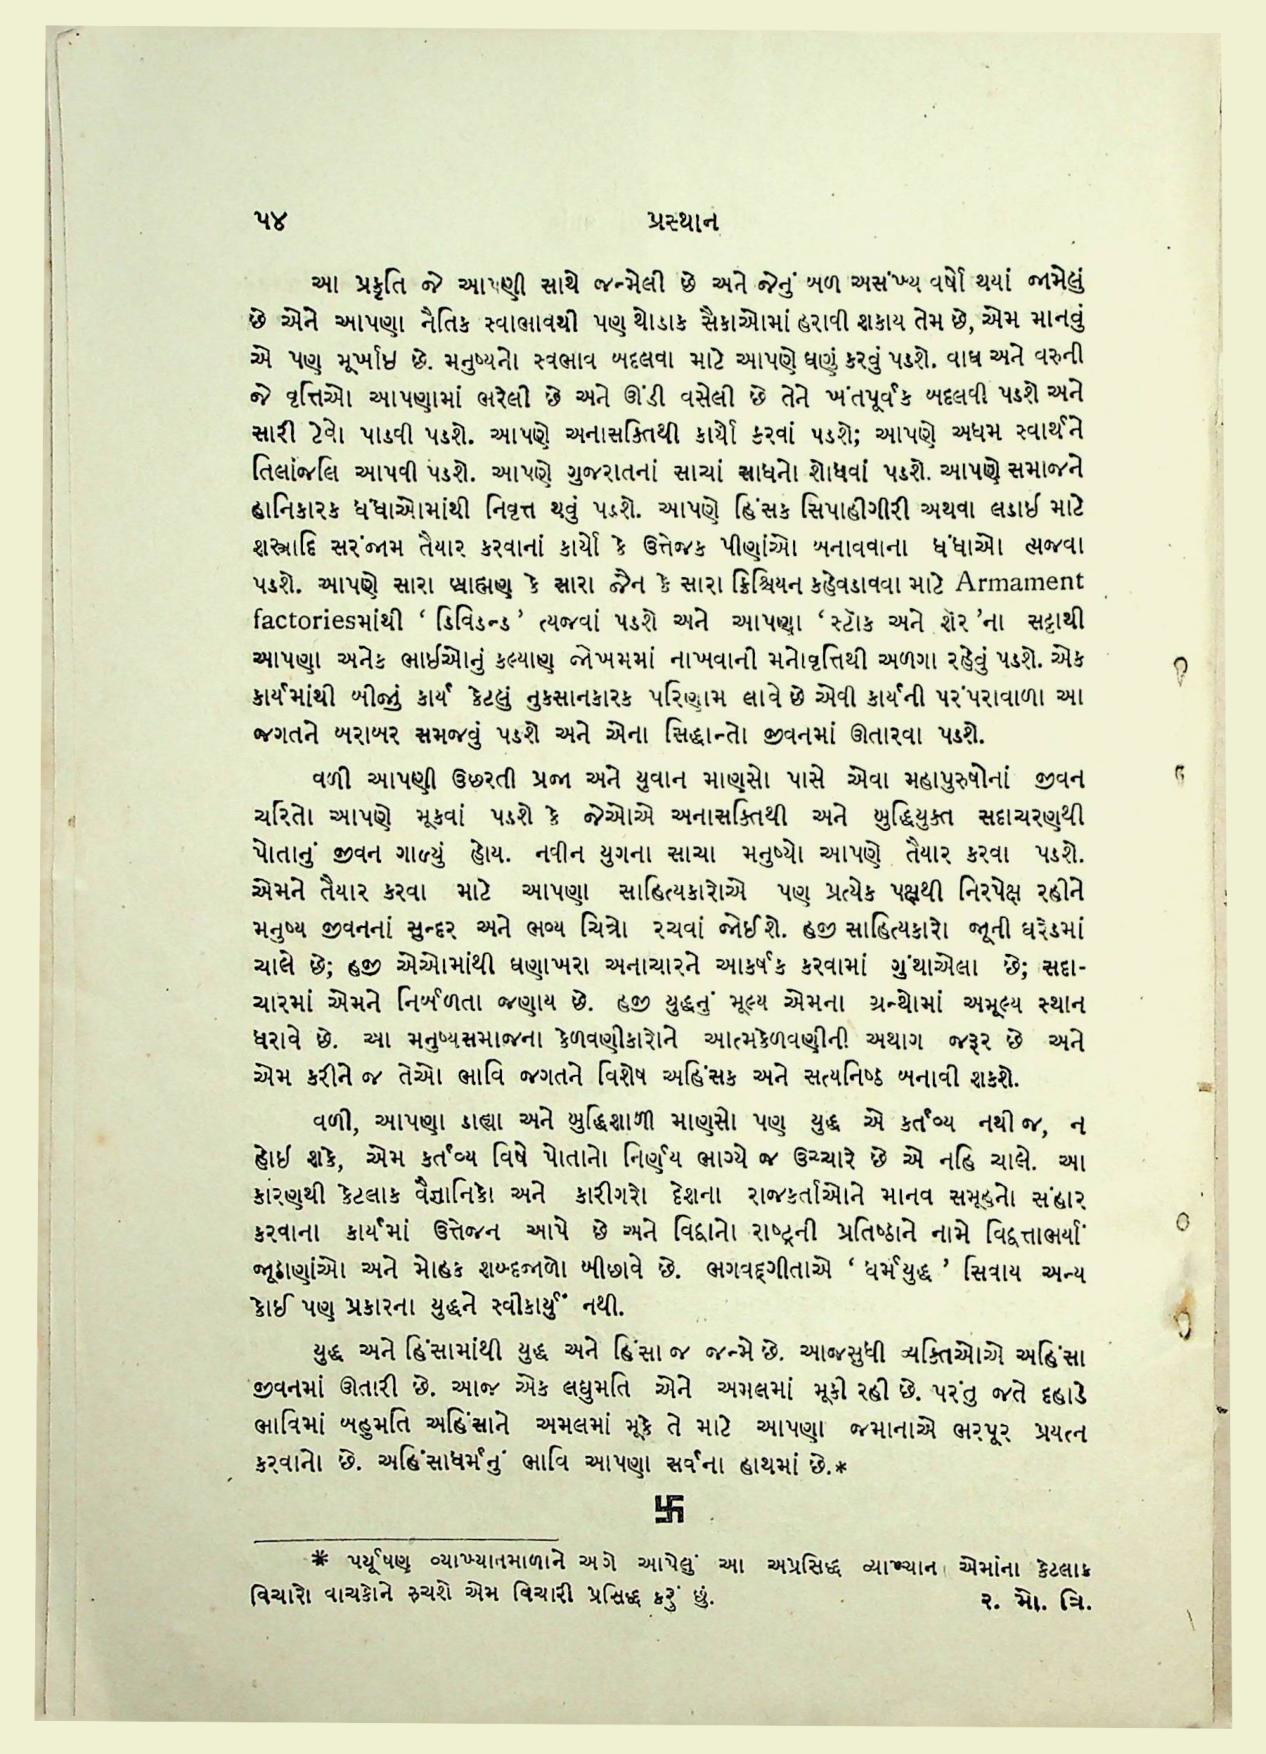 ૫૪
પ્રસ્થાન
આ પ્રકૃતિ જે આપણી સાથે જન્મેલી છે અને જેનું બળ અસંખ્ય વર્ષો થયાં જામેલું
છે એને આપણા નૈતિક સ્વાભાવથી પણ થોડાક સૈકાઓમાં હરાવી શકાય તેમ છે, એમ માનવું
એ પણ મૂર્ખાઇ છે. મનુષ્યનો સ્વભાવ બદલવા માટે આપણે ઘણું કરવું પડશે. વાઘ અને વરુની
જે વૃત્તિઓ આપણામાં ભરેલી છે અને ઊંડી વસેલી છે તેને ખંતપૂર્વક બદલવી પડશે અને
સારી ટેવો પાડવી પડશે. આપણે અનાસક્તિથી કાર્યો કરવાં પડશે; આપણે અધમ સ્વાર્થને
તિલાંજલિ આપવી પડશે. આપણે ગુજરાતનાં સાચાં સાધનો શોધવાં પડશે. આપણે સમાજને
હાનિકારક ધંધાઓમાંથી નિવૃત્ત થવું પડશે. આપણે હિંસક સિપાહીગીરી અથવા લડાઇ માટે
શસ્ત્રાદિ સરંજામ તૈયાર કરવાનાં કાર્યો કે ઉત્તેજક પીણાંઓ બનાવવાના ધંધાઓ ત્યજવા
પડશે. આપણે સારા બ્રાહ્મણ કે સારા જૈન કે સારા ક્રિશ્ચિયન કહેવડાવવા માટે Armament
factoriesમાંથી ‘ ડિવિડન્ડ ’ ત્યજવાં પડશે અને આપણા ‘ સ્ટૉક અને શૅર ’ના સટ્ટાથી
આપણા અનેક ભાઈઓનું કલ્યાણ જોખમમાં નાખવાની મનોવૃત્તિથી અળગા રહેવું પડશે. એક
કાર્યમાંથી બીજું કાર્ય કેટલું નુકસાનકારક પરિણામ લાવે છે એવી કાર્યની પરંપરાવાળા આ
જગતને બરાબર સમજવું પડશે અને એના સિદ્ધાન્તો જીવનમાં ઊતારવા પડશે.
વળી આપણી ઉછરતી પ્રજા અને યુવાન માણસો પાસે એવા મહાપુરુષોનાં જીવન
ચરિતો આપણે મૂકવાં પડશે કે જેઓએ અનાસક્તિથી અને બુદ્ધિયુક્ત સદાચરણથી
પોતાનું જીવન ગાળ્યું હોય. નવીન યુગના સાચા મનુષ્યો આપણે તૈયાર કરવા પડશે.
એમને તૈયાર કરવા માટે આપણા સાહિત્યકારોએ પણ પ્રત્યેક પક્ષથી નિરપેક્ષ રહીને
મનુષ્ય જીવનનાં સુન્દર અને ભવ્ય ચિત્રો રચવાં જોઈશે. હજી સાહિત્યકારો જૂની ઘરેડમાં
ચાલે છે; હજી એઓમાંથી ઘણાખરા અનાચારને આકર્ષક કરવામાં ગુંથાએલા છે; સદા-
ચારમાં એમને નિર્બળતા જણાય છે. હજી યુદ્ધનું મૂલ્ય એમના ગ્રન્થોમાં અમૂલ્ય સ્થાન
ધરાવે છે. આ મનુષ્યસમાજના કેળવણીકારોને આત્મકેળવણીની અથાગ જરૂર છે અને
એમ કરીને જ તેઓ ભાવિ જગતને વિશેષ અહિંસક અને સત્યનિષ્ઠ બનાવી શકશે.
વળી, આપણા ડાહ્યા અને બુદ્ધિશાળી માણસો પણ યુદ્ધ એ કર્તવ્ય નથી જ, ન
હોઇ શકે, એમ કર્તવ્ય વિષે પોતાનો નિર્ણય ભાગ્યે જ ઉચ્ચારે છે એ નહિ ચાલે. આ
કારણથી કેટલાક વૈજ્ઞાનિકો અને કારીગરો દેશના રાજકર્તાઓને માનવ સમૂહનો સંહાર
કરવાના કાર્યમાં ઉત્તેજન આપે છે અને વિદ્વાનો રાષ્ટ્રની પ્રતિષ્ઠાને નામે વિદ્વત્તાભર્યાં
જૂઠાણાંઓ અને મોહક શબ્દજાળો બીછાવે છે. ભગવદ્ગીતાએ ‘ ધર્મયુદ્ધ ’ સિવાય અન્ય
કોઈ પણ પ્રકારના યુદ્ધને સ્વીકાર્યું નથી.
યુદ્ધ અને હિંસામાંથી યુદ્ધ અને હિંસા જ જન્મે છે. આજસુધી વ્યક્તિઓએ અહિંસા
જીવનમાં ઊતારી છે. આજ એક લઘુમતિ એને અમલમાં મૂકી રહી છે. પરંતુ જતે દહાડે
ભાવિમાં બહુમતિ અહિંસાને અમલમાં મૂકે તે માટે આપણા જમાનાએ ભરપૂર પ્રયત્ન
કરવાનો છે. અહિંસાધર્મનું ભાવિ આપણા સર્વના હાથમાં છે.*
* પર્યૂષણ વ્યાખ્યાનમાળાને અંગે આપેલું આ અપ્રસિદ્ધ વ્યાખ્યાન એમાંના કેટલાક
વિચારો વાચકોને રુચશે એમ વિચારી પ્રસિદ્ધ કરું છું.
ર. મો. ત્રિ.